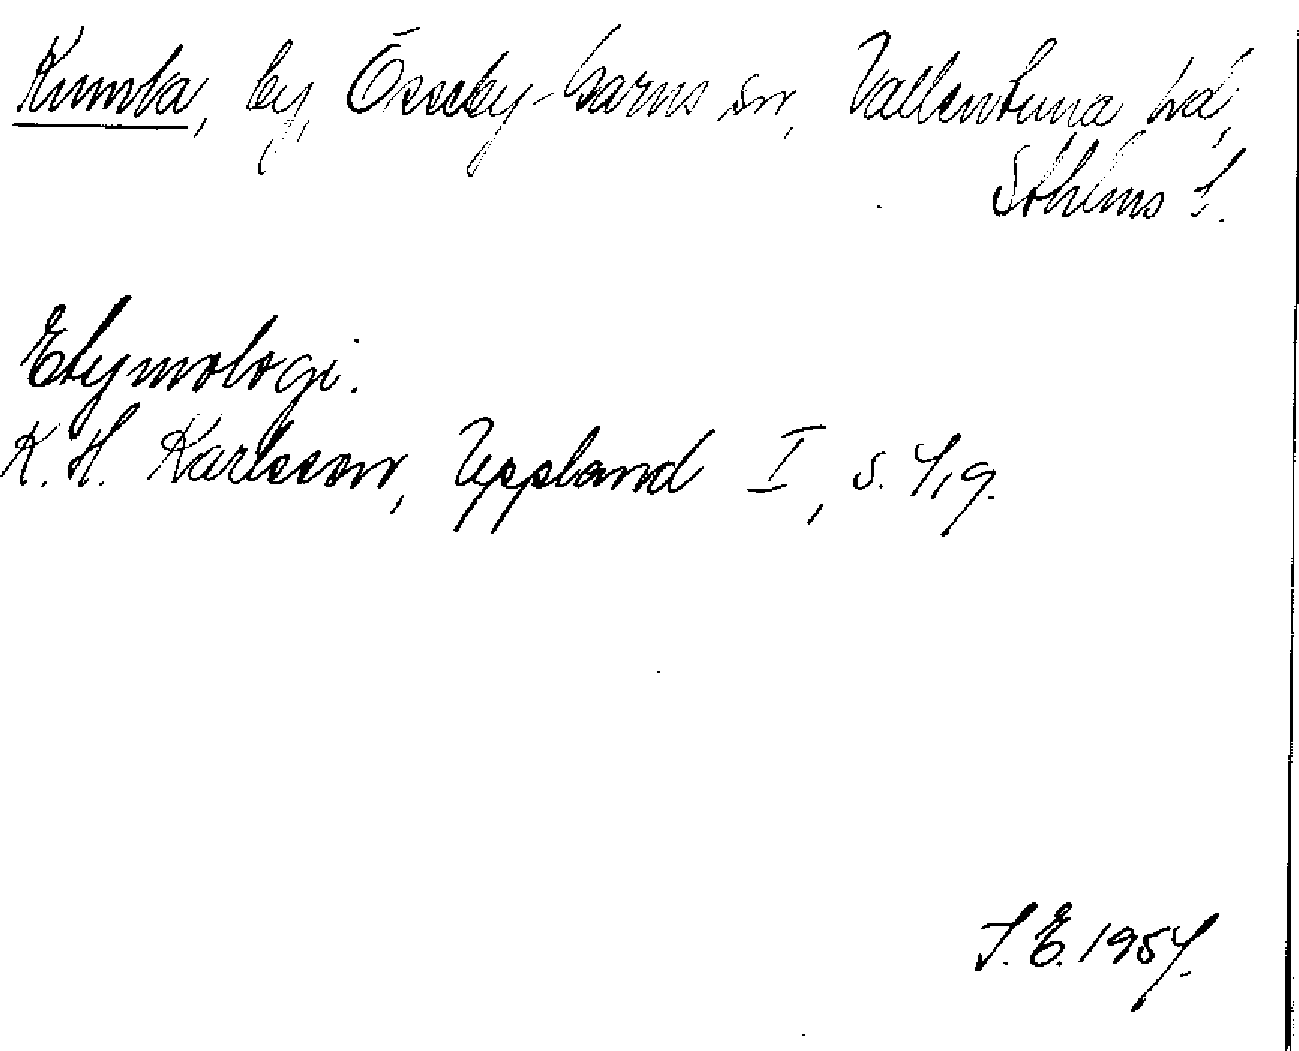 Kumla, by, Össeby-Garns sn, Vallentuna hd,
Sthlms l.
Etymologi.
K. H. Karlsson, Uppland I, s. 419.
S. E. 1954.